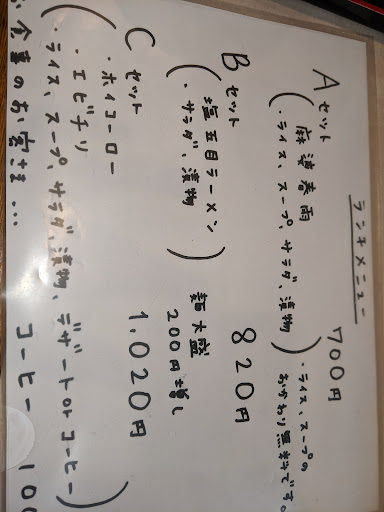 ランチメニュー
Aセット 700円
麻婆春雨
(・ライス、スープ、サラダ、漬物)
・ライス、スープの
おかわり無料です。
Bセット 820円
塩五目ラーメン
(・サラダ、漬物)
麺大盛
200円増し
Cセット 1.020円
・ホイコーロー
・エビチリ
(・ライス、スープ、サラダ、漬物、デザートorコーヒー)
食事のお客さま… コーヒー 100